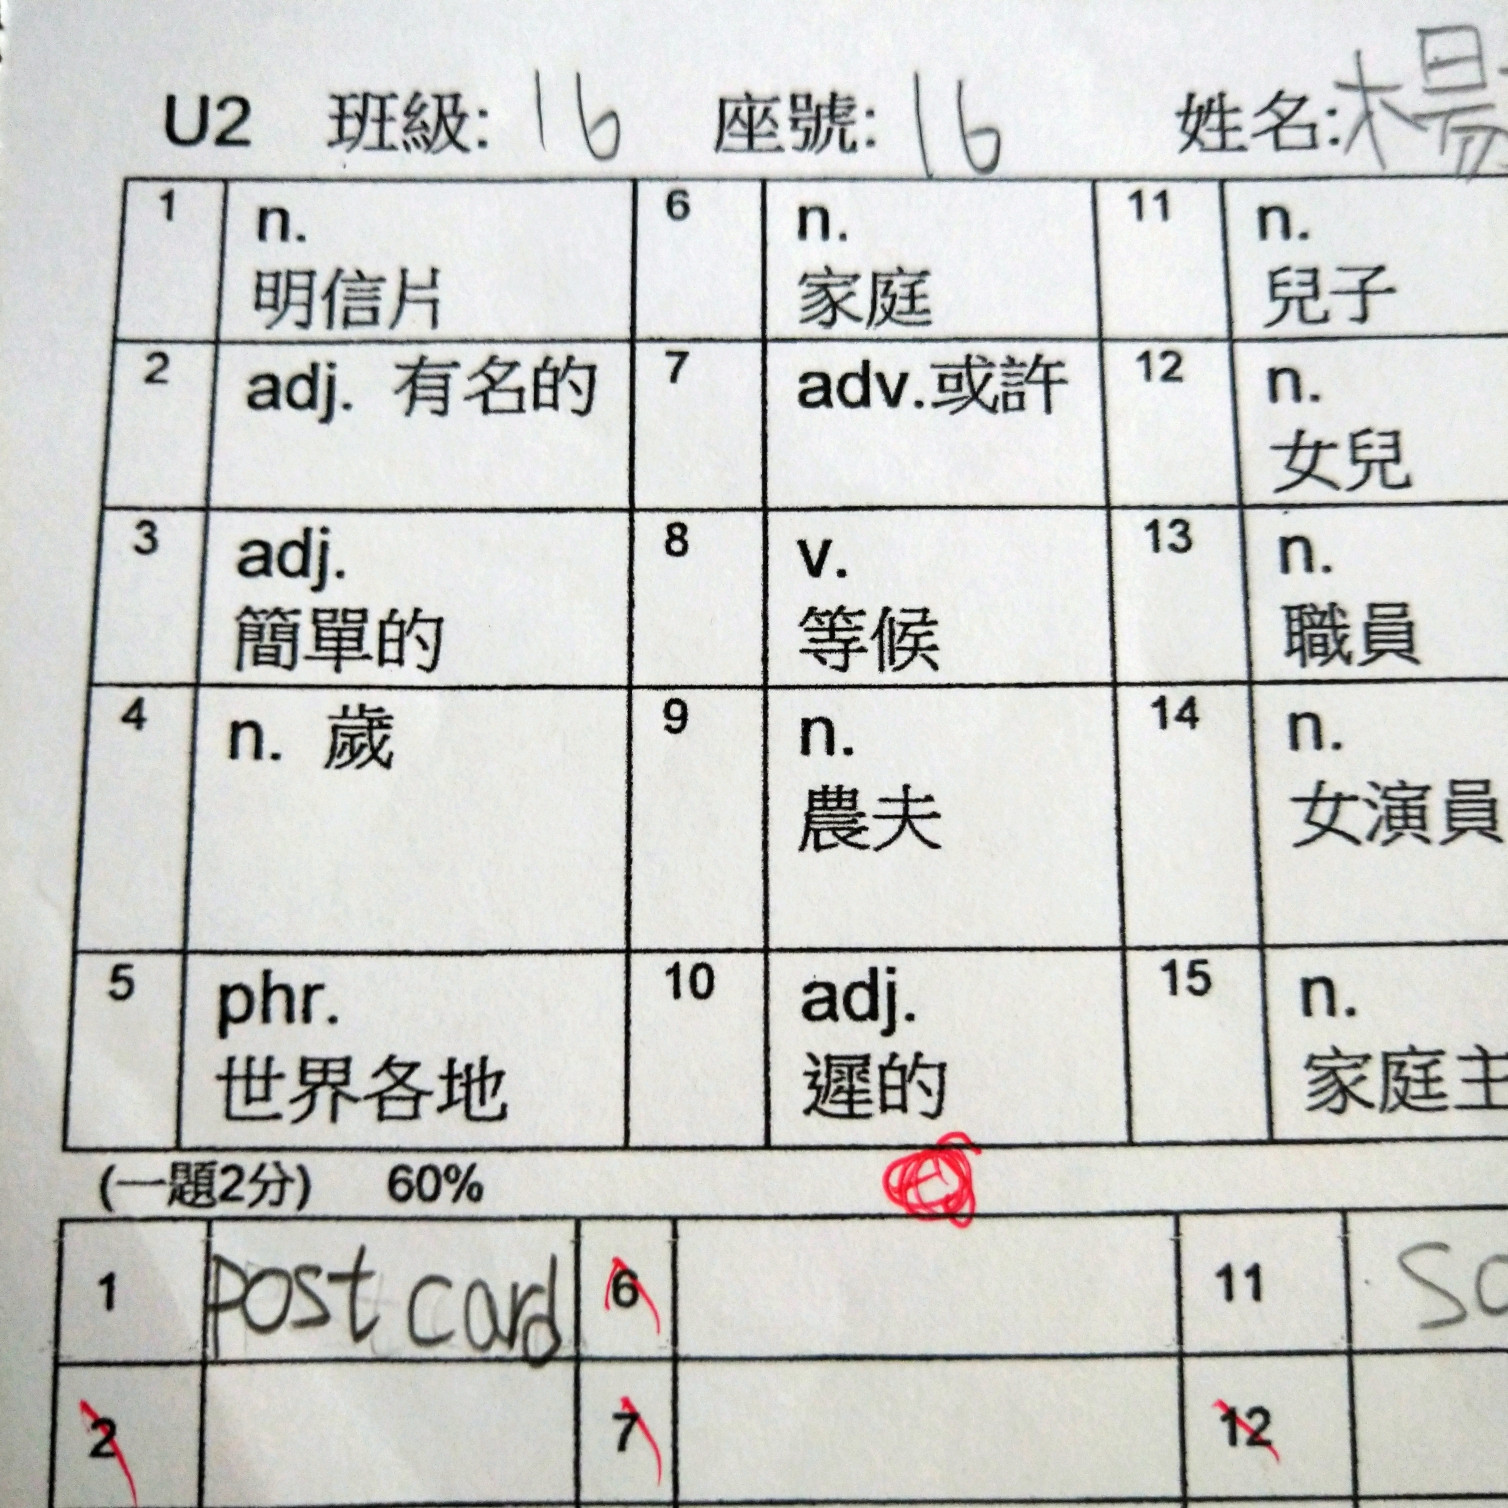 U2 班級: 16 座號: 16 姓名: 楊
1 n. 6 n. 11 n.
明信片 家庭 兒子
2 adj. 有名的 7 adv.或許 12 n.
女兒
3 adj. 8 v. 13 n.
簡單的 等候 職員
4 n. 歲 9 n. 14 n.
農夫 女演員
5 phr. 10 adj. 15 n.
世界各地 遲的 家庭主
(一題2分) 60%
1 post card 6 11 so
2 7 12